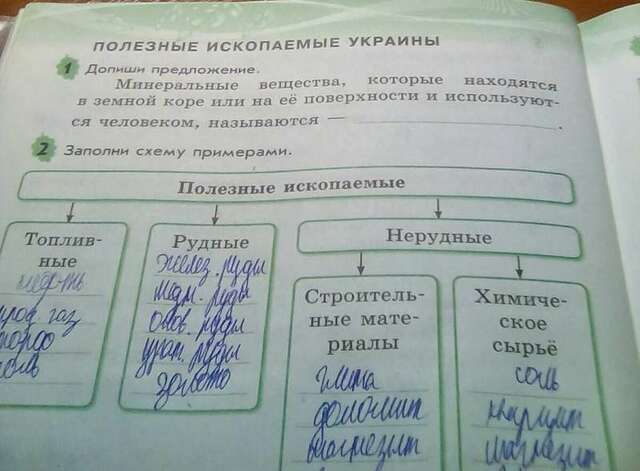 ПОЛЕЗНЫЕ ИСКОПАЕМЫЕ УКРАИНЫ
1 Допиши предложение.
Минеральные вещества, которые находятся
в земной коре или на её поверхности и используют-
ся человеком, называются —
2 Заполни схему примерами.
Полезные ископаемые
Топлив-
ные
газ
Рудные
желез. руды
руды
руды
руды
золото
Нерудные
Строитель-
ные мате-
риалы
глина
доломит
магнезит
Химиче-
ское
сырьё
соль
магнезит